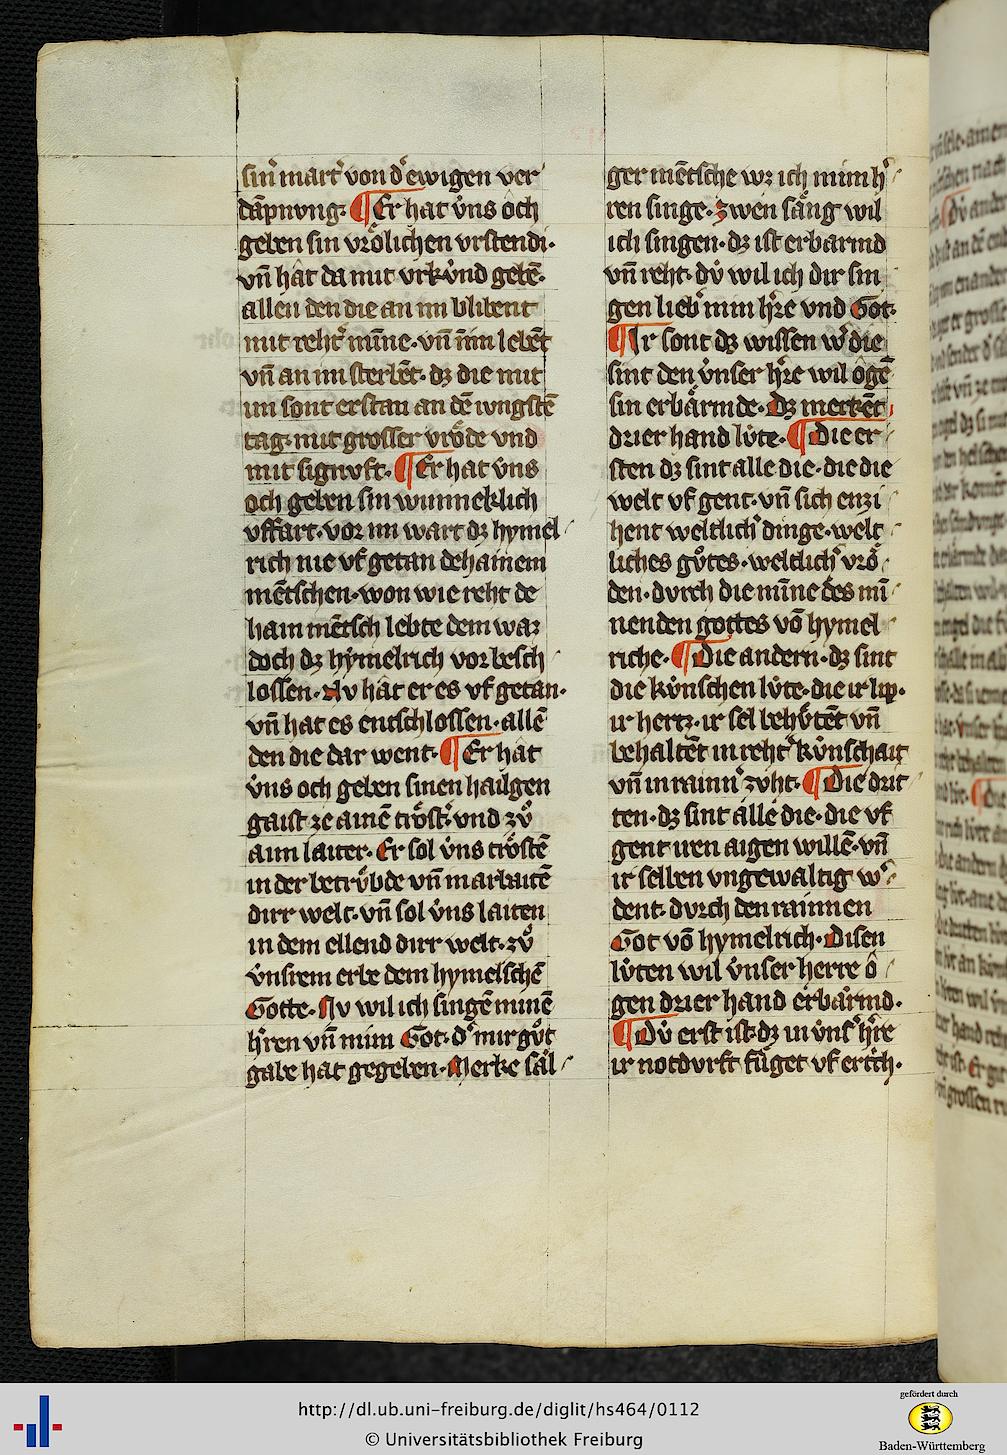 sin̄ mart᷑ von d᷑ ewigen ver
dāpnvng. ¶ Er hat v́ns och
geben sin vrőlichen vrstendi.
vn̄ hat da mit vrkv́nd gebē.
allen den die an im blibent
mit reht᷑ mīne. vn̄ in im lebēt
vn̄ an im sterbēt. dz die mit
im sont erstan an dē ivngstē
tag. mit grosser vrőde vnd
mit signvft. ¶ Er hat v́ns
och geben sin wunneklich
vffart. vor im wart dz hymel
rich nie vf getan dehainem
mētschen. won wie reht de
hain mētsch lebte dem waz
doch dz hymelrich vor besch
lossen. Nv hat er es vf getan.
vn̄ hat es entschlossen. allē
den die dar went. ¶ Er hat
v́ns och geben sinen hailgen
gaist ze ainē trőst᷑ vnd zvͦ
aim laiter. Er sol v́ns trőstē
in der betrv́bde vn̄ in arbaitē
dirr welt. vn̄ sol v́ns laiten
in dem ellend dirr welt. zvͦ
v́nsrem erbe dem hymelschē
Gotte. Nv wil ich singē minē
h᷑ren vn̄ mim Got. d᷑ mir gvͦt
gabe hat gegeben. Merke sål
ger mētsche wz ich mim h᷑
ren singe. zwen sång wil
ich singen. dz ist erbarmd
vn̄ reht. dv́ wil ich dir sin
gen lieb᷑ min h᷑re vnd Got.
¶ Ir sont dz wissen w᷑ die
sint den v́nser h᷑re wil ǒgē
sin erbårmde. Dz merkēt
drier hand lv́te. ¶ Die er
sten dz sint alle die. die die
welt vf gent. vn̄ sich enzi
hent weltlich᷑ dinge. welt
liches gvͦtes. weltlich᷑ vrő
den. dvrch die mīne des mī
nenden gottes vō hymel
riche. ¶ Die andern. dz sint
die kv́nschen lv́te. die ir lip.
ir hertz. ir sel behv́tēt vn̄
behaltēt in reht᷑ kv́nschait
vn̄ in rainn᷑ zvht. ¶ Die drit
ten. dz sint alle die. die vf
gent iren aigen willē. vn̄
ir selben vngewaltig w᷑
dent. dvrch den rainnen
Got vō hymelrich. Disen
lv́ten wil v́nser herre ǒ
gen drier hand erbårmd.
¶ Dv́ erst ist. dz in v́ns᷑ h᷑re
ir notdvrft fůget vf ertrich.
http://dl.ub.uni-freiburg.de/diglit/hs464/0112
© Universitätsbibliothek Freiburg
gefördert durch
Baden-Württemberg